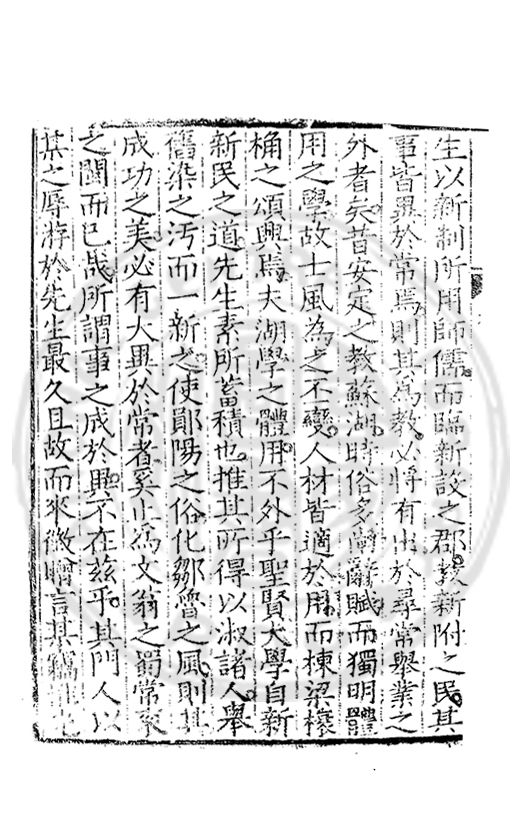 生以新制所用師儒而臨新設之郡教新附之民其
事皆異於常焉則其為教必將有出於尋常舉業之
外者矣昔安定之教蘇湖時俗多尚辭賦而獨明體
用之學故士風為之丕變人材皆適於用而棟梁榱
桷之頌興焉夫湖學之體用不外乎聖賢大學自新
新民之道先生素所蓄積也推其所得以淑諸人舉
舊染之汚而一新之使鄖陽之俗化鄒魯之風則其
成功之美必有大異於常者奚止為文翁之蜀常袞
之閩而已哉所謂事之成於異不在茲乎其門人以
某之辱游於先生最久且故而來徵贈言某竊